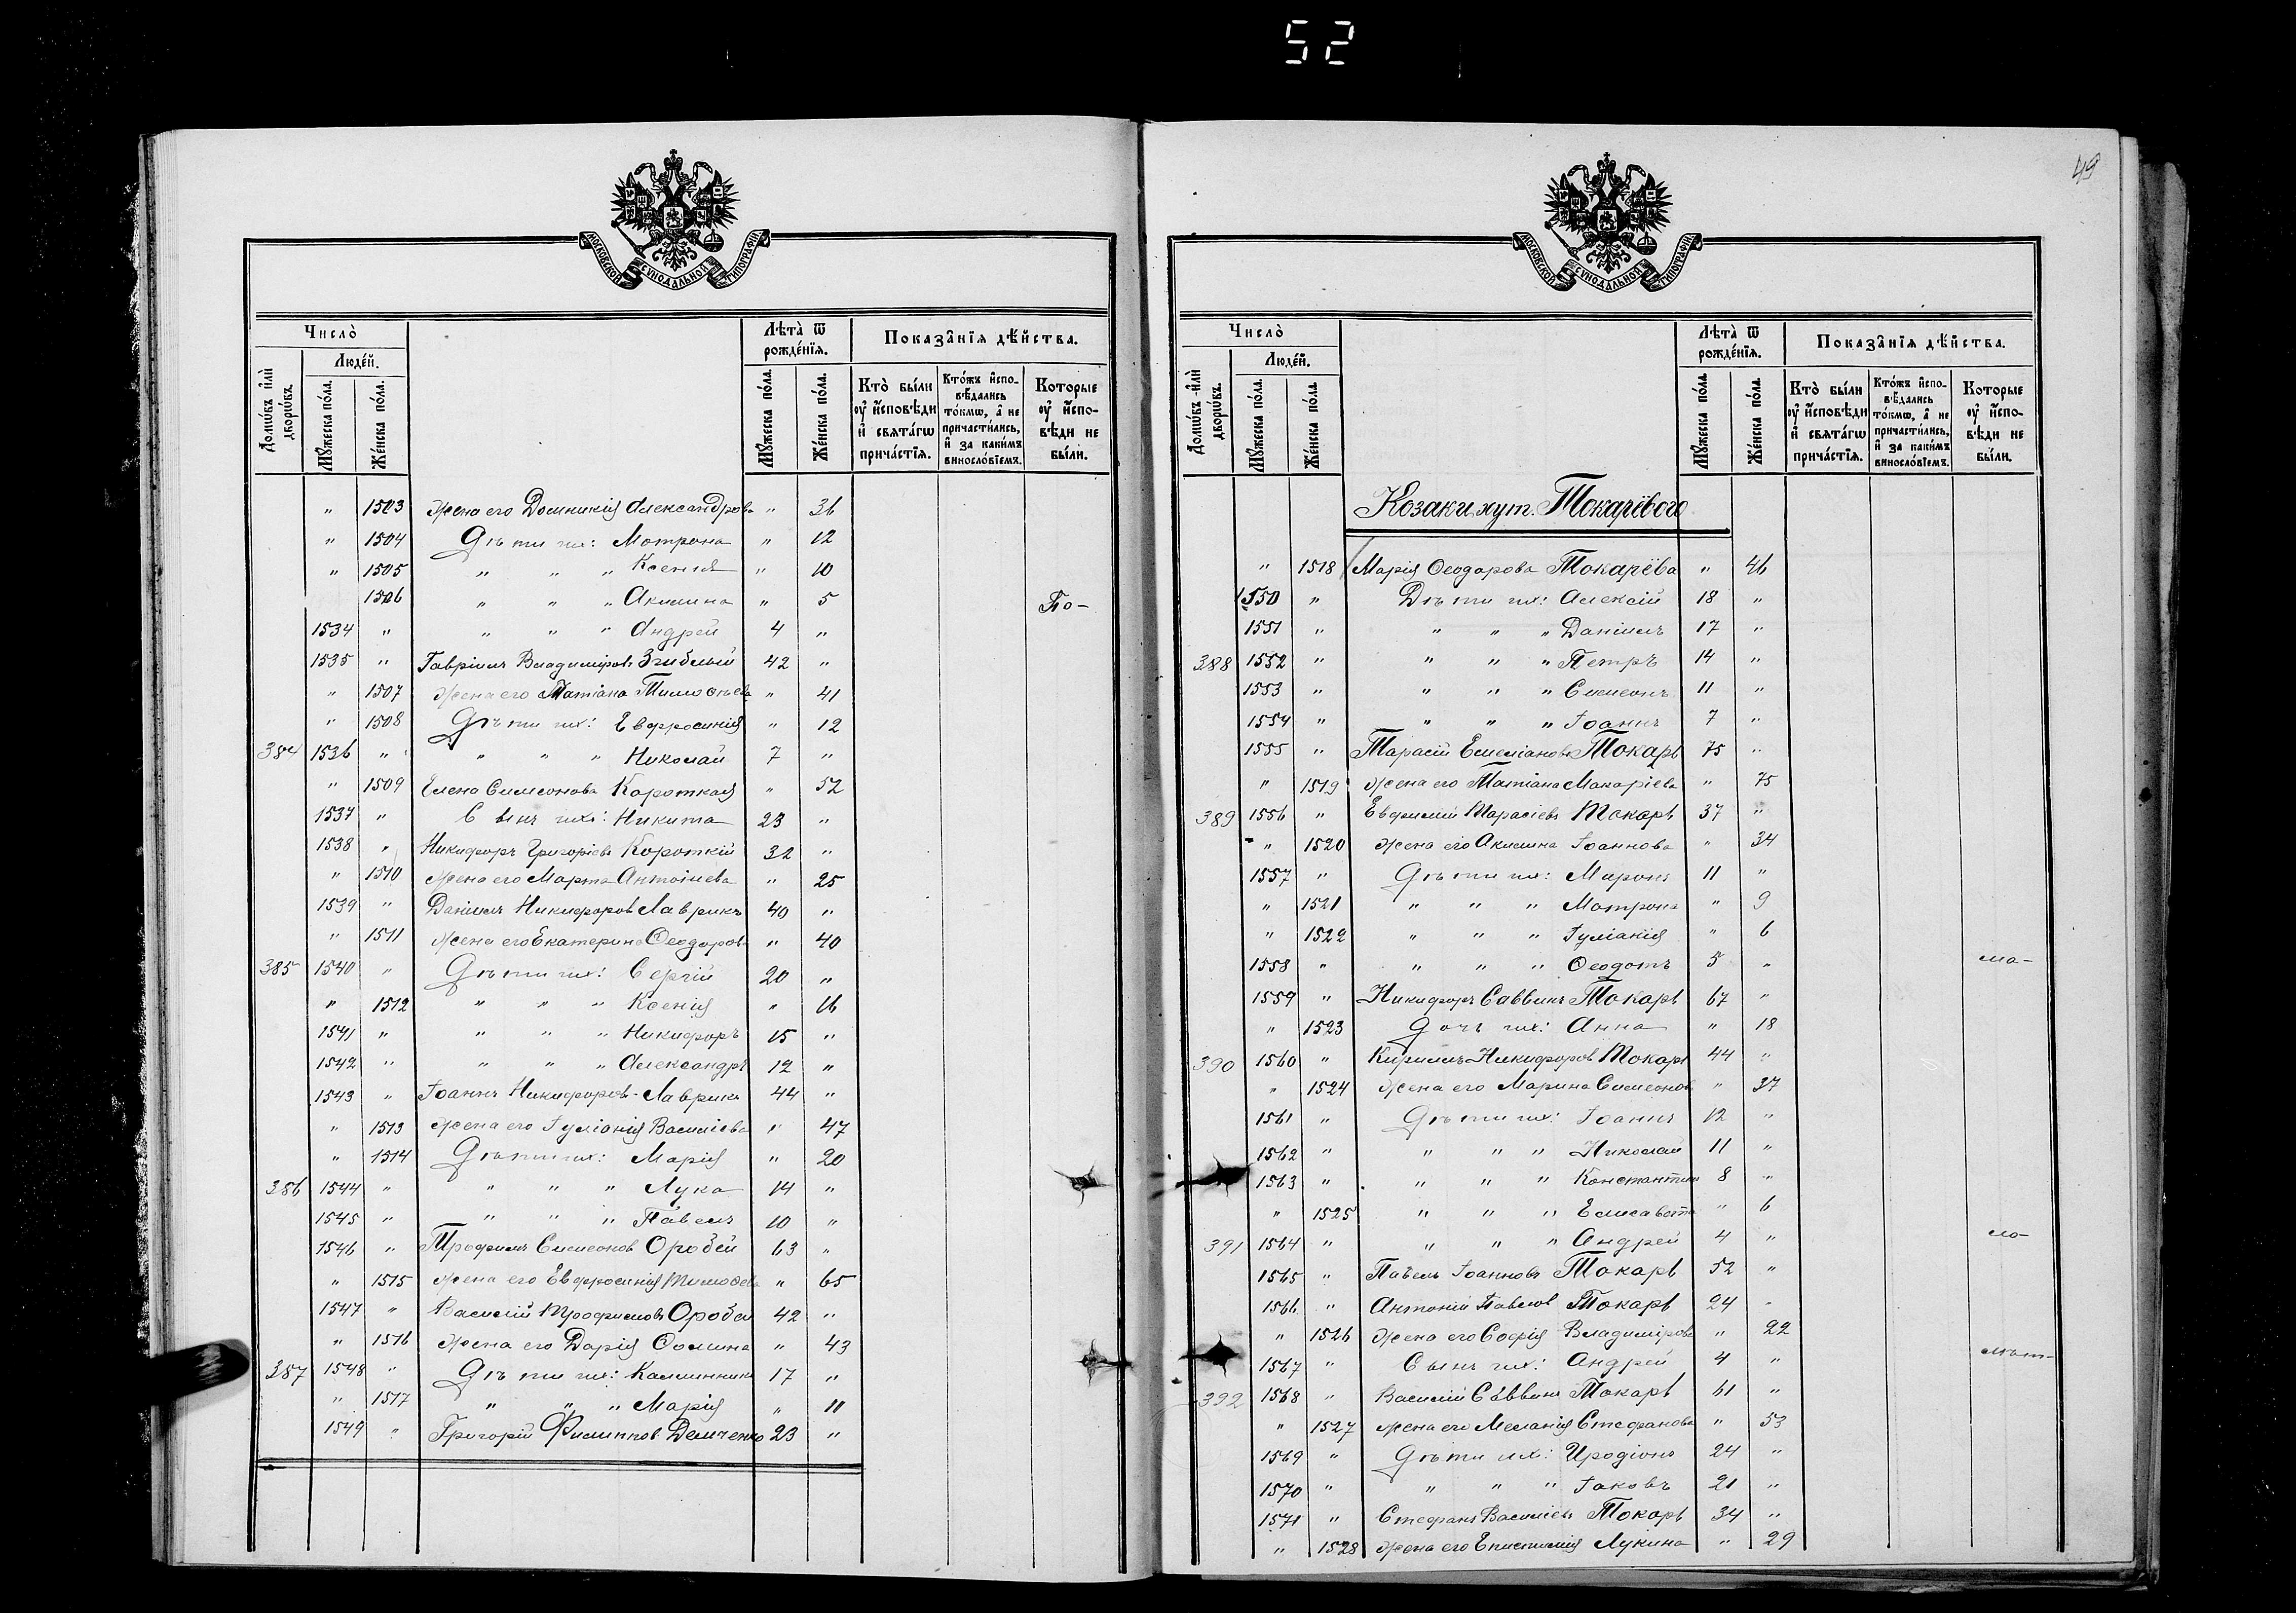 52
МОСКОВСКОЙ СѴНОДАЛЬНОЙ ТИПОГРАФІИ
Число̀
Людéй.
Домѡ́въ и҆лѝ дворѡ́въ.
Мꙋ́жеска по́ла.
Же́нска по́ла.
Лѣ̑та ѿ рожде́нїѧ.
Мꙋ́жеска по́ла.
Же́нска по́ла.
Показа̑нїѧ дѣ́йства.
Кто̀ бы́ли ᲂу҆ и҆́сповѣди и҆ свѧта́гѡ прича́стїѧ.
Кто́жъ и҆спо-вѣ́дались то́кмѡ, а҆ не причасти́лись, и҆ за каки́мъ виносло́вїемъ.
Которые ᲂу҆ и҆́спо-вѣди не бы́ли.
" 1503 Жена его Домникія Александрова " 36
" 1504 Дѣти их: Мотрона " 12
" 1505 " " " Ксенія " 10
1506 " " " Акилина " 5 По-
1534 " " " " Андрей 4 "
1535 " Гавріилъ Владиміровъ Згиблый 42 "
" 1507 Жена его Татіана Тимоѳеева " 41
" 1508 Дѣти их: Евфросинія " 12
384 1536 " " " " Николай 7 "
" 1509 Елена Симеонова Короткая " 52
1537 " Сынъ их: Никита 23 "
1538 " Никифоръ Григоріевъ Короткій 32 "
" 1510 Жена его Марта Антоніева " 25
1539 " Даніилъ Никифоровъ Лаврикъ 40 "
" 1511 Жена его Екатерина Ѳеодорова " 40
385 1540 " Дѣти их: Сергій 20 "
" 1512 " " " Ксенія " 16
1541 " " " " Никифоръ 15 "
1542 " " " " Александръ 12 "
1543 " Іоаннъ Никифоровъ Лаврикъ 44 "
" 1513 Жена его Іуліанія Василіева " 47
" 1514 Дѣти их: Марія " 20
386 1544 " " " " Лука 14 "
1545 " " " " Павелъ 10 "
1546 " Трофимъ Симеонов Оробей 63 "
" 1515 Жена его Евфросинія Тимоѳеева " 65
1547 " Василій Трофимовъ Оробей 42 "
" 1516 Жена его Дарія Ѳомина " 43
387 1548 " Дѣти их: Каллиникъ 17 "
" 1517 " " " Марія " 11
1549 " Григорій Филиппов Демченко 23 "
49
МОСКОВСКОЙ СѴНОДАЛЬНОЙ ТИПОГРАФІИ
Число̀
Людéй.
Домѡ́въ и҆лѝ дворѡ́въ.
Мꙋ́жеска по́ла.
Же́нска по́ла.
Лѣ̑та ѿ рожде́нїѧ.
Мꙋ́жеска по́ла.
Же́нска по́ла.
Показа̑нїѧ дѣ́йства.
Кто̀ бы́ли ᲂу҆ и҆́сповѣди и҆ свѧта́гѡ прича́стїѧ.
Кто́жъ и҆спо-вѣ́дались то́кмѡ, а҆ не причасти́лись, и҆ за каки́мъ виносло́вїемъ.
Которые ᲂу҆ и҆́спо-вѣди не бы́ли.
Козаки хут. Токарёвого
" 1518 Марія Ѳеодорова Токарёва " 46
1550 " Дѣти их: Алексій 18 "
1551 " " " " Даніилъ 17 "
388 1552 " " " " Петръ 14 "
1553 " " " " Симеонъ 11 "
1554 " " " " Іоаннъ 7 "
1555 " Тарасій Емеліановъ Токарь 75 "
" 1519 Жена его Татіана Макаріева " 75
389 1556 " Евфимій Тарасіевъ Токарь 37 "
" 1520 Жена его Акилина Іоаннова " 34
1557 " Дѣти их: Миронъ 11 "
" 1521 " " " Мотрона " 9
" 1522 " " " Іуліанія " 6
1558 " " " " Ѳеодотъ 5 " ма-
1559 " Никифоръ Саввинъ Токарь 67 "
" 1523 Дочь их: Анна " 18
390 1560 " Кириллъ Никифоров Токарь 44 "
" 1524 Жена его Марина Симеонова " 37
1561 " Дѣти их: Іоаннъ 12 "
1562 " " " " Николай 11 "
1563 " " " " Константинъ 8 "
" 1525 " " " Елисавета " 6
391 1564 " " " " Андрей 4 " ло-
1565 " Павелъ Іоанновъ Токарь 52 "
1566 " Антоній Павлов Токарь 24 "
" 1526 Жена его Софія Владимірова " 22
1567 " Сынъ их: Андрей 4 " лѣт-
392 1568 " Василій Саввинъ Токарь 61 "
" 1527 Жена его Меланія Стефанова " 53
1569 " Дѣти их: Иродіонъ 24 "
1570 " " " " Іаковъ 21 "
1571 " Стефанъ Василіевъ Токарь 34 "
" 1528 Жена его Епистимія Лукина " 29